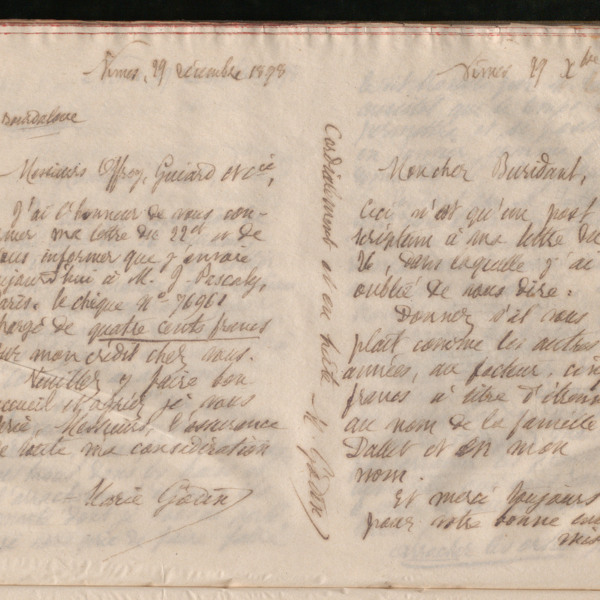 Nîmes, 29 décembre 1898
Bourdaloue
Messieurs Offroy, Guiard et Cie,
J'ai l'honneur de vous con-
mer ma lettre du 22 ct et de
vous informer que j'envoie
ujourd'hui à M. J. Pascaly,
Paris. le chèque No 76961
hargé de quatre cents francs
sur mon crédit chez vous.
Veuillez y faire bon
accueil et agréer, je vous
prie, Messieurs, l'assurance
de toute ma considération
Marie Godin
Cordialement et en hâte - M. Godin
Nîmes 29 Xbre
Mon cher Buridant,
Ceci n'est qu'un post
scriptum à ma lettre du
26, dans laquelle j'ai
oublié de vous dire:
Donnez s'il vous
plaît comme les autres
années, au facteur, cinq
francs à titre d'étrenne
au nom de la famille
Dallet et en mon
nom.
Et merci toujours
pour votre bonne